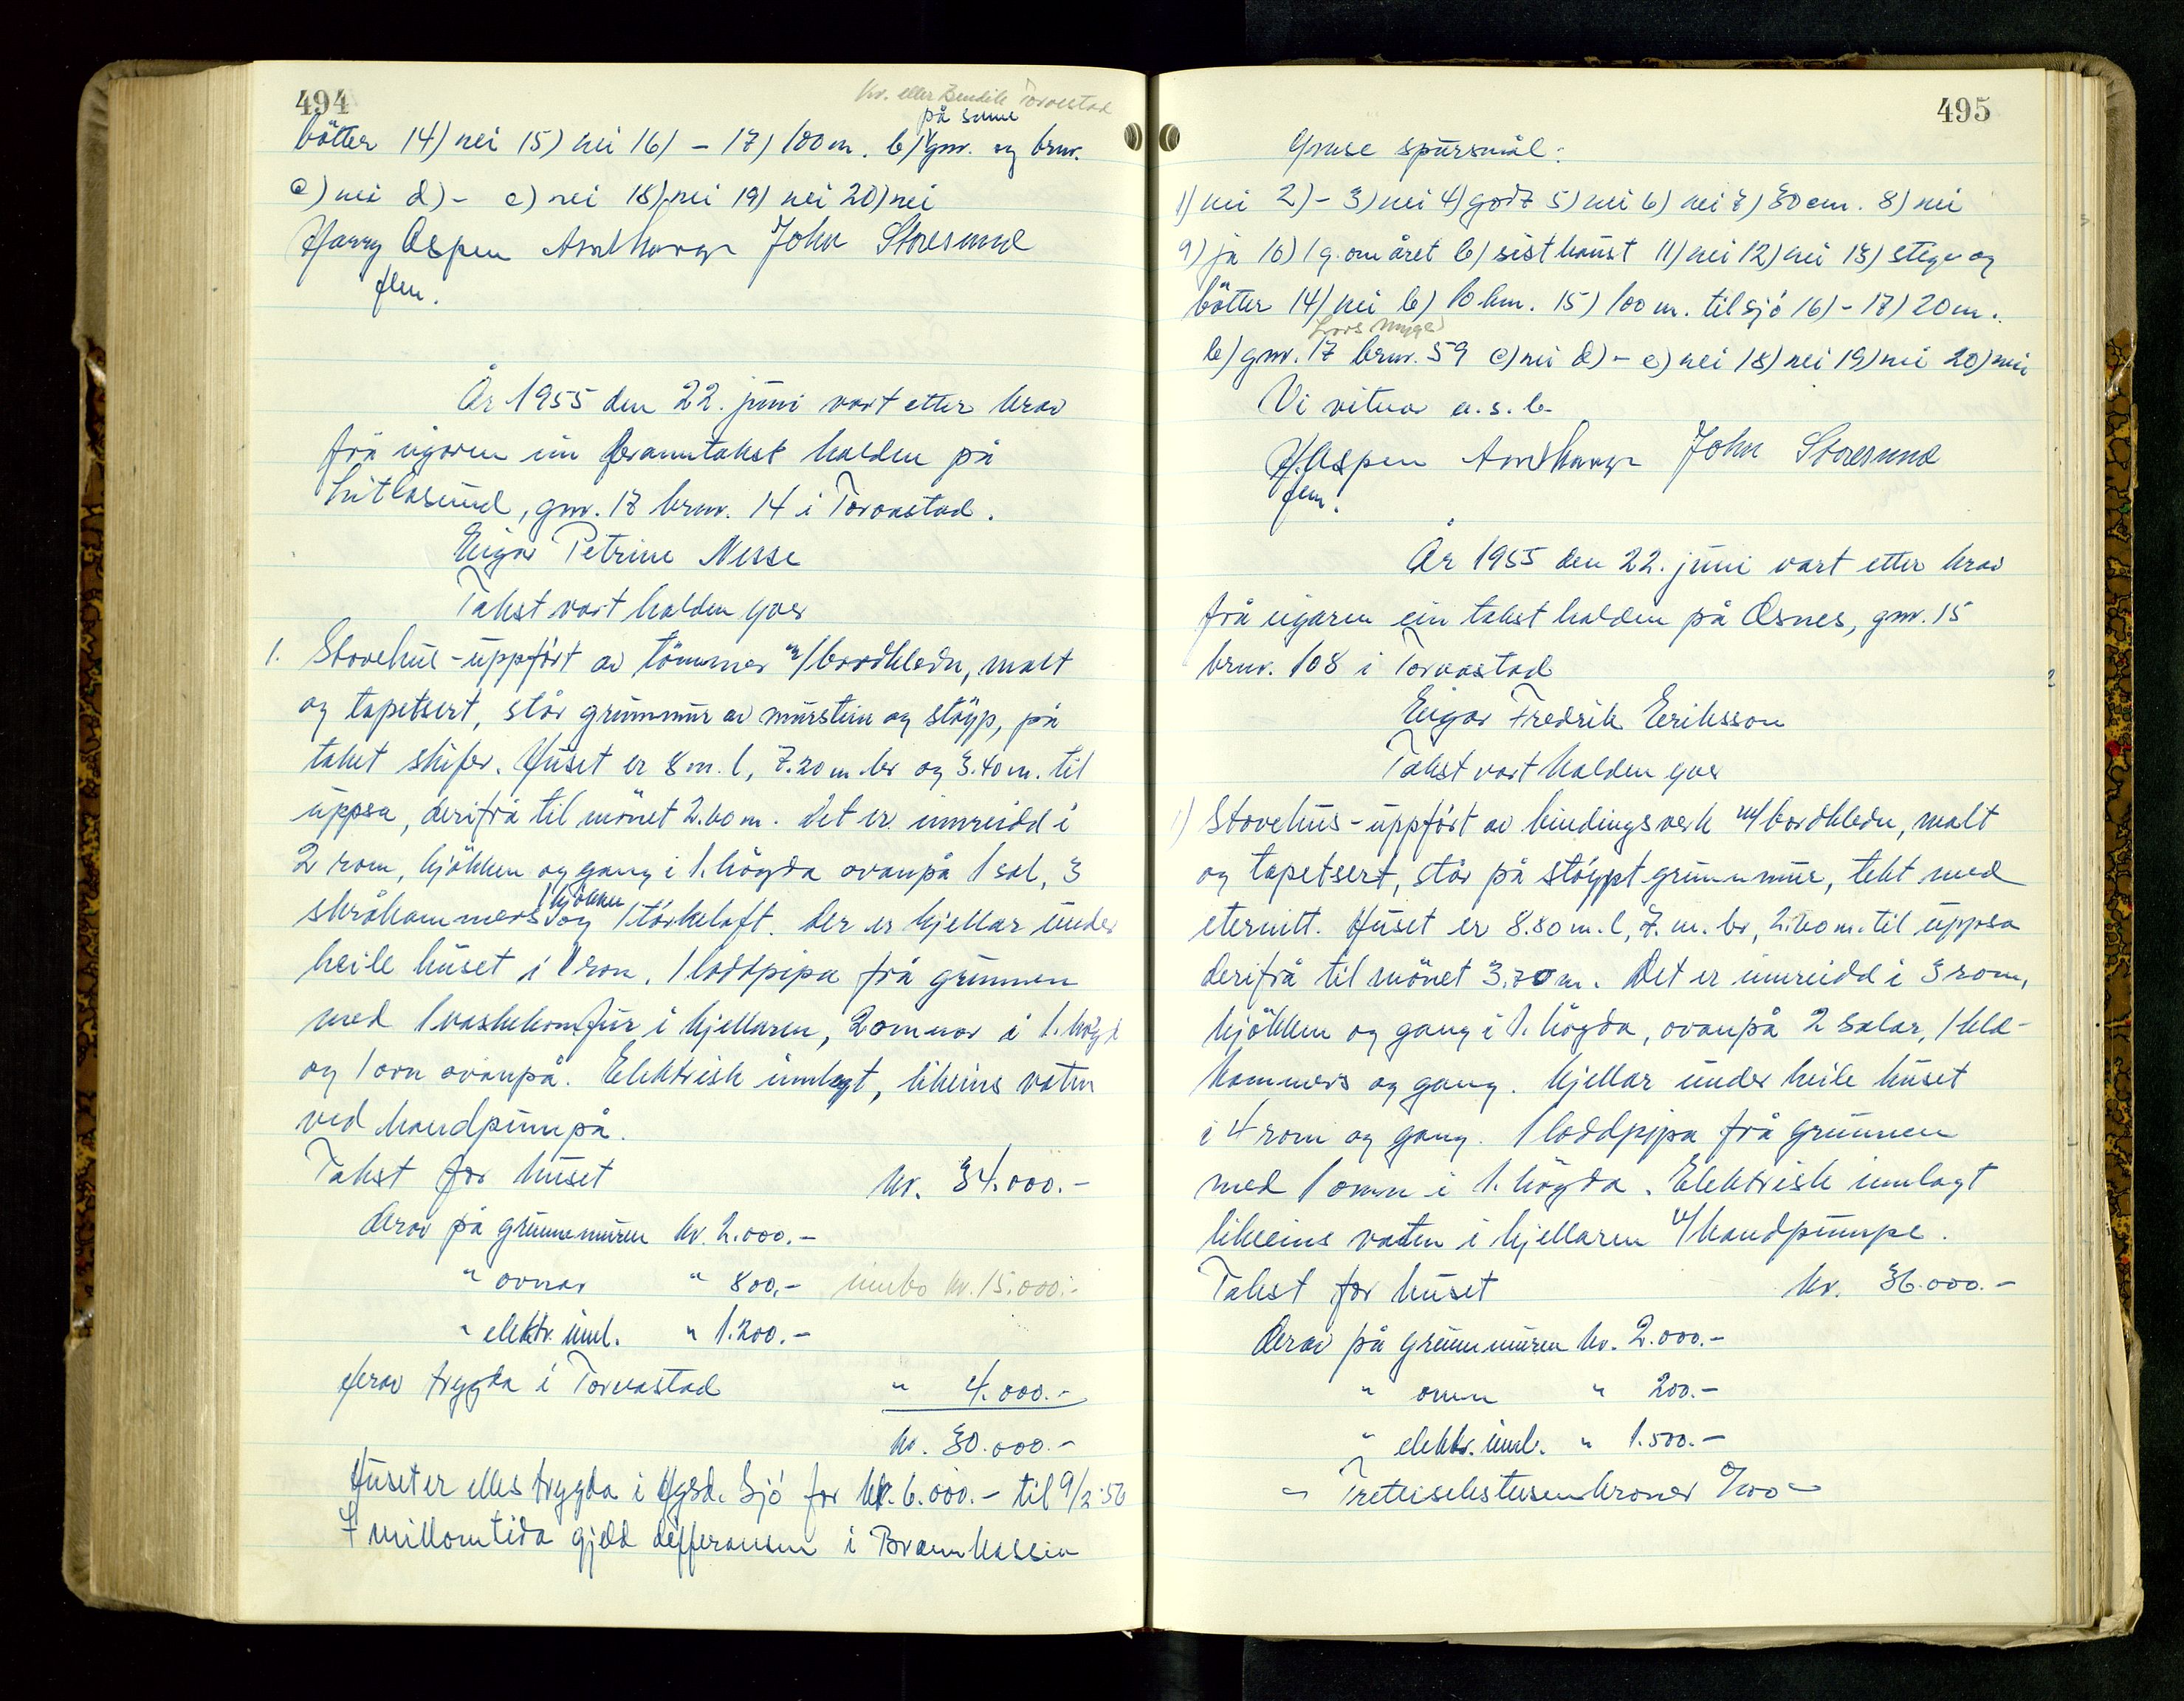 494
kr. eller Bendik Torvestad
på same
bötter 14) nei 15) nei 16) - 17) 100 m. b) gnr. og brnr.
c) nei d) - e) nei 18) nei 19) nei 20) nei
Harry Aspen John Storesund
flm.
År 1955 den 22. juni vart etter krav
frå eigaren ein branntakst halden på
Litlasund, gnr. 17 brnr. 14 i Torvastad.
Eigar Petrine Nesse
Takst vart halden yver
1. Stovehus - uppført av tömmer m/bordkledn, malt
og tapetsert, står grunnmur av murstein og støyp, på
taket skifer. Huset er 8 m. l, 7.20 m. br og 3.40 m. til
uppsa, derifrå til mönet 2.60 m. Det er innreidd i
2 rom, kjökken og gang i 1. högda ovanpå 1 sal, 3
kjökken
skråkammers og 1 törkeloft. Der er kjellar under
heile huset i 1 rom. 1 loddpipa frå grunnen
med 1 vaskekomfur i kjellaren, 2 omnar i 1. högd
og 1 ovn ovanpå. Elektrisk innlagt, likeins vatn
ved handpumpå.
Takst for huset kr. 34.000.-
derav på grunnemuren kr. 2.000.-
" ovnar " 800.- innbo kr. 15.000.-
" elektr. innl. " 1.200.-
herav trygda i Torvastad " 4.000.-
kr. 30.000.-
Huset er elles trygda i Hgsd. Sjö for kr. 6.000.- til 9/2-56
I millomtida gjeld differansen i Brannkassen
495
Ymse spursmål:
1) nei 2) - 3) nei 4) godt 5) nei 6) nei 7) 30 cm. 8) nei
9) ja 10) 1 g. om året b) sist haust 11) nei 12) nei 13) stige og
bötter 14) nei b) 10 km. 15) 100 m. til sjö 16) - 17) 20 m.
Lars
b) gnr. 17 brnr. 59 c) nei d) - e) nei 18) nei 19) nei 20) nei
Vi vitnar a. s. b.
H. Aspen John Storesund
flm.
År 1955 den 22. juni vart etter krav
frå eigaren ein takst halden på Osnes, gnr. 15
brnr. 108 i Torvastad
Eigar Fredrik Eriksson
Takst vart halden yver
1) Stovehus - uppført av bindingsverk m/bordkledn, malt
og tapetsert, står på støypt grunnmur, tekt med
eternitt. Huset er 8.80 m. l, 7. m. br, 2.60 m. til uppsa
derifrå til mönet 3.70 m. Det er innreidd i 3 rom,
kjökken og gang i 1. högda, ovanpå 2 salar, 1 kle-
kammers og gang. Kjellar under heile huset
i 4 rom og gang. 1 loddpipa frå grunnen
med 1 omn i 1. högda. Elektrisk innlagt
likeeins vatten i kjellaren v/handpumpe.
Takst for huset kr. 36.000.-
derav på grunnmuren kr. 2.000.-
" omn " 200.-
" elektr. innl. " 1.500.-
- Trettisekstusenkroner 0/100 -